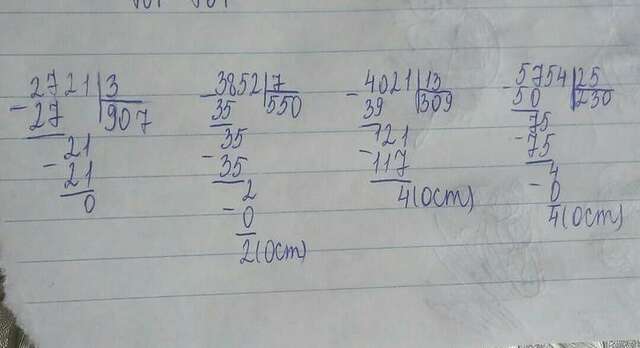 2721 3
-27 907
21
-21
0
-3852 7
35 550
35
-35
2
-0
2(Ост)
-4021 13
39 309
121
-117
4(Ост)
-5754 25
50 230
75
-75
4
-0
4(Ост)